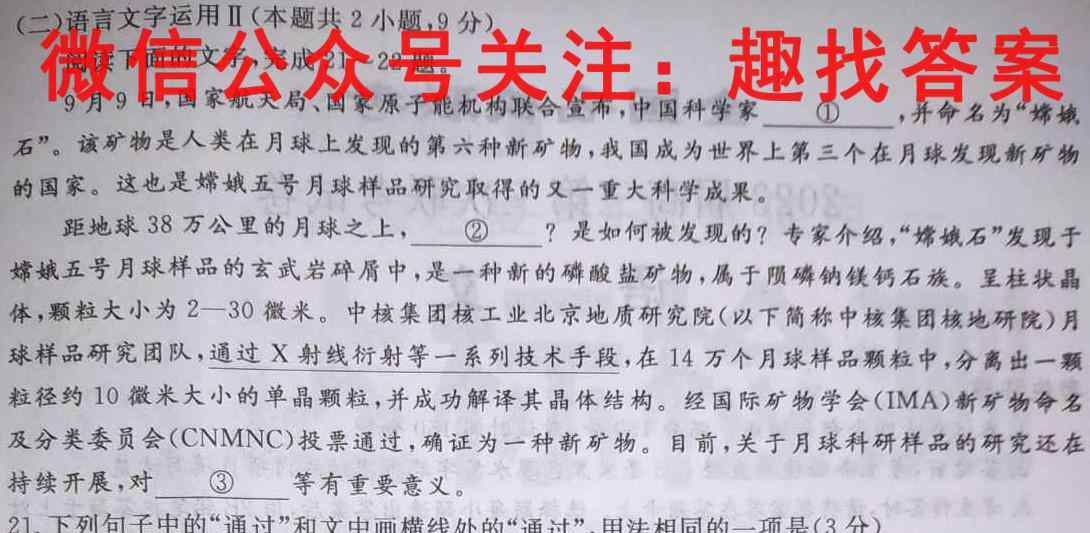 (二)语言文字运用Ⅱ(本题共2小题,9分)
微信公众号关注:趣找答案
阅读下面的文字,完成21~22题。
9月9日,国家航天局、国家原子能机构联合宣布,中国科学家 ① ,并命名为“嫦娥
石”。该矿物是人类在月球上发现的第六种新矿物,我国成为世界上第三个在月球发现新矿物
的国家。这也是嫦娥五号月球样品研究取得的又一重大科学成果。
距地球38万公里的月球之上, ② ?是如何被发现的?专家介绍,“嫦娥石”发现于
嫦娥五号月球样品的玄武岩碎屑中,是一种新的磷酸盐矿物,属于陨磷钠镁钙石族。呈柱状晶
体,颗粒大小为2—30微米。中核集团核工业北京地质研究院(以下简称中核集团核地研院)月
球样品研究团队,通过X射线衍射等一系列技术手段,在14万个月球样品颗粒中,分离出一颗
粒径约10微米大小的单晶颗粒,并成功解译其晶体结构。经国际矿物学会(IMA)新矿物命名
及分类委员会(CNMNC)投票通过,确证为一种新矿物。目前,关于月球科研样品的研究还在
持续开展,对 ③ 等有重要意义。
21.下列句子中的“通过”和文中画横线处的“通过”,用法相同的一项是(3分)